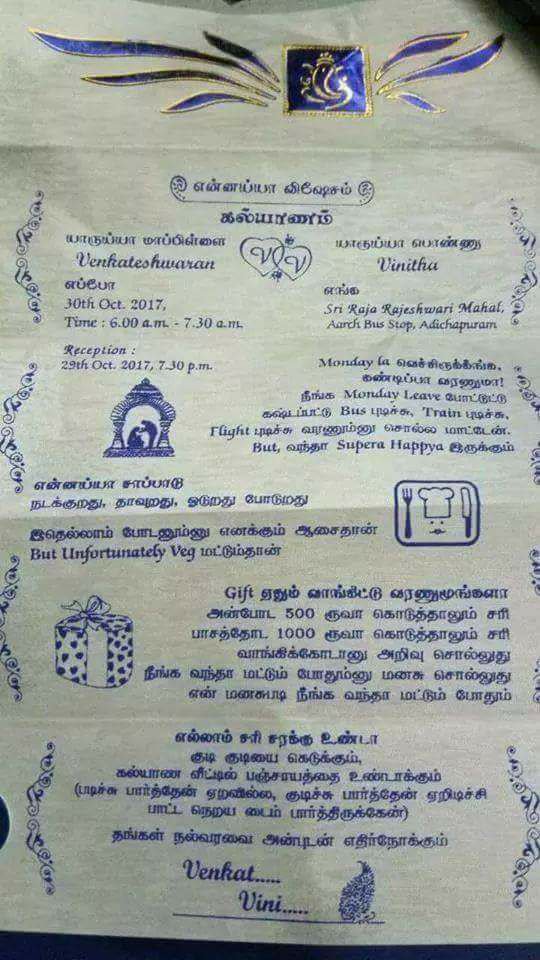 என்னய்யா விஷேசம்
கல்யாணம்
யாருய்யா மாப்பிள்ளை
Venkateshwaran
V V
யாருய்யா பொண்ணு
Vinitha
எப்போ
30th Oct. 2017,
Time : 6.00 a.m. - 7.30 a.m.
எங்க
Sri Raja Rajeshwari Mahal,
Aarch Bus Stop, Adichapuram
Reception :
29th Oct. 2017, 7.30 p.m.
Monday la வெச்சிருக்கீங்க,
கண்டிப்பா வரணுமா!
நீங்க Monday Leave போட்டுட்டு
கஷ்டப்பட்டு Bus புடிச்சு, Train புடிச்சு,
Flight புடிச்சு வரணும்னு சொல்ல மாட்டேன்.
But, வந்தா Supera Happya இருக்கும்
என்னய்யா சாப்பாடு
நடக்குறது, தாவுறது, ஓடுறது போடுறது
இதெல்லாம் போடனும்னு எனக்கும் ஆசைதான்
But Unfortunately Veg மட்டும்தான்
Gift ஏதும் வாங்கிட்டு வரணுமுங்களா
அன்போட 500 ரூவா கொடுத்தாலும் சரி
பாசத்தோட 1000 ரூவா கொடுத்தாலும் சரி
வாங்கிக்கோடானு அறிவு சொல்லுது
நீங்க வந்தா மட்டும் போதும்னு மனசு சொல்லுது
என் மனசுபடி நீங்க வந்தா மட்டும் போதும்
எல்லாம் சரி சரக்கு உண்டா
குடி குடியை கெடுக்கும்,
கல்யாண வீட்டில் பஞ்சாயத்தை உண்டாக்கும்
(படிச்சு பார்த்தேன் ஏறவில்ல, குடிச்சு பார்த்தேன் ஏறிடிச்சி
பாட்ட நெறய டைம் பார்த்திருக்கேன்)
தங்கள் நல்வரவை அன்புடன் எதிர்நோக்கும்
Venkat.....
Vini.....